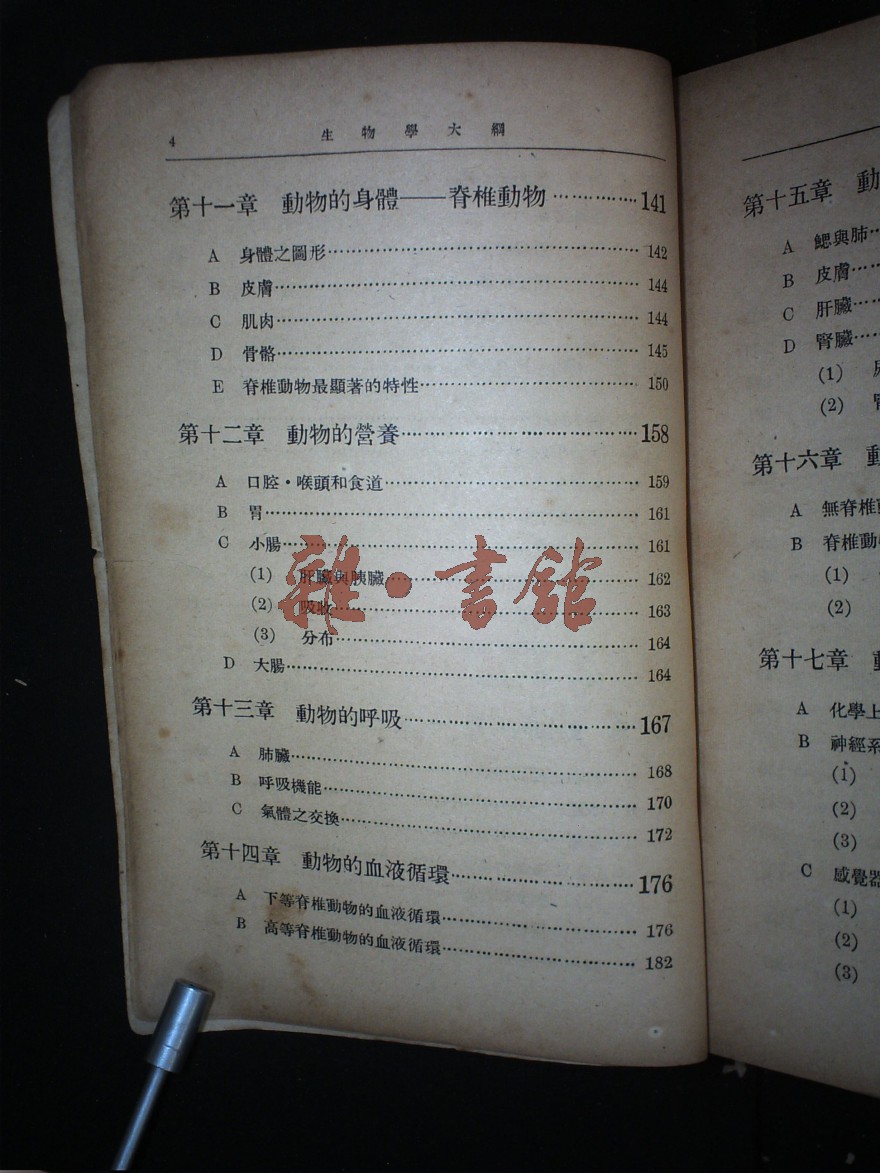 4 生物學大綱
第十一章 動物的身體——脊椎動物 141
A 身體之圖形 142
B 皮膚 144
C 肌肉 144
D 骨骼 145
E 脊椎動物最顯著的特性 150
第十二章 動物的營養 158
A 口腔·喉頭和食道 159
B 胃 161
C 小腸 161
(1) 肝臟與胰臟 162
(2) 吸收 163
(3) 分布 164
D 大腸 164
第十三章 動物的呼吸 167
A 肺臟 168
B 呼吸機能 170
C 氣體之交換 172
第十四章 動物的血液循環 176
A 下等脊椎動物的血液循環 176
B 高等脊椎動物的血液循環 182
雜·書館
第十五章 動
A 鰓與肺
B 皮膚
C 肝臟
D 腎臟
(1)
(2)
第十六章 動
A 無脊椎
B 脊椎動
(1)
(2)
第十七章
A 化學上
B 神經系
(1)
(2)
(3)
C 感覺器
(1)
(2)
(3)